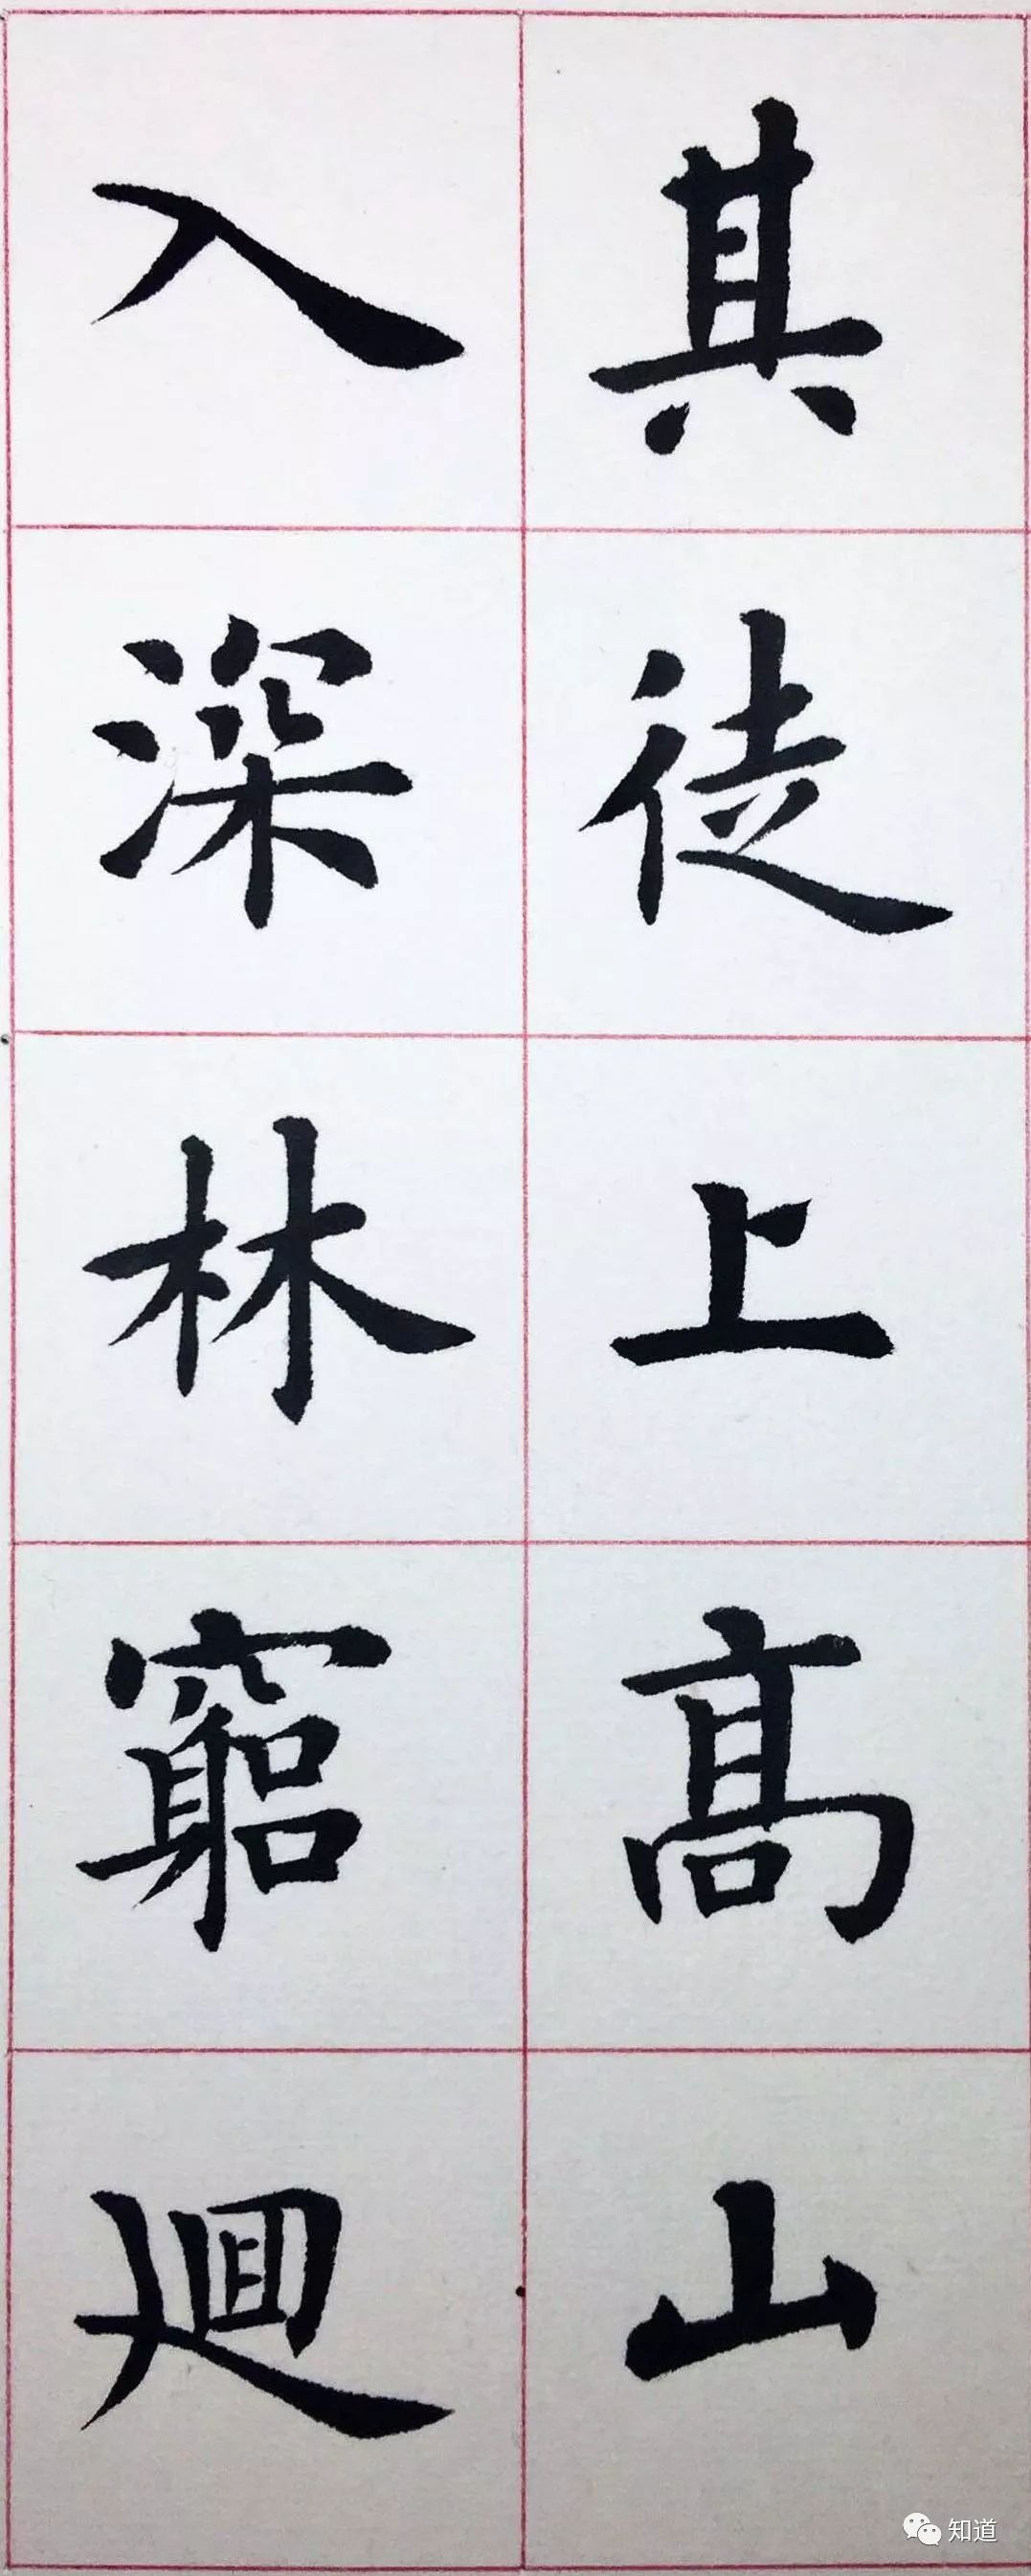 其徒上髙山
入深林窮迴
知道